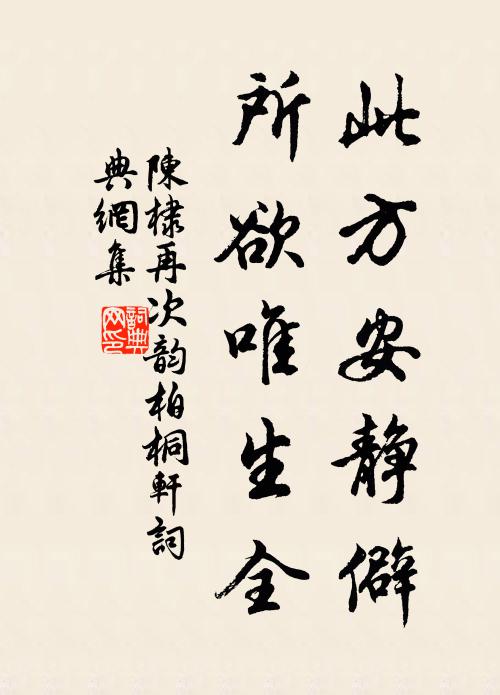 此方安静僻
所欲唯生全
陳棣再次韵柏桐軒詞
典網集
詞典
网印